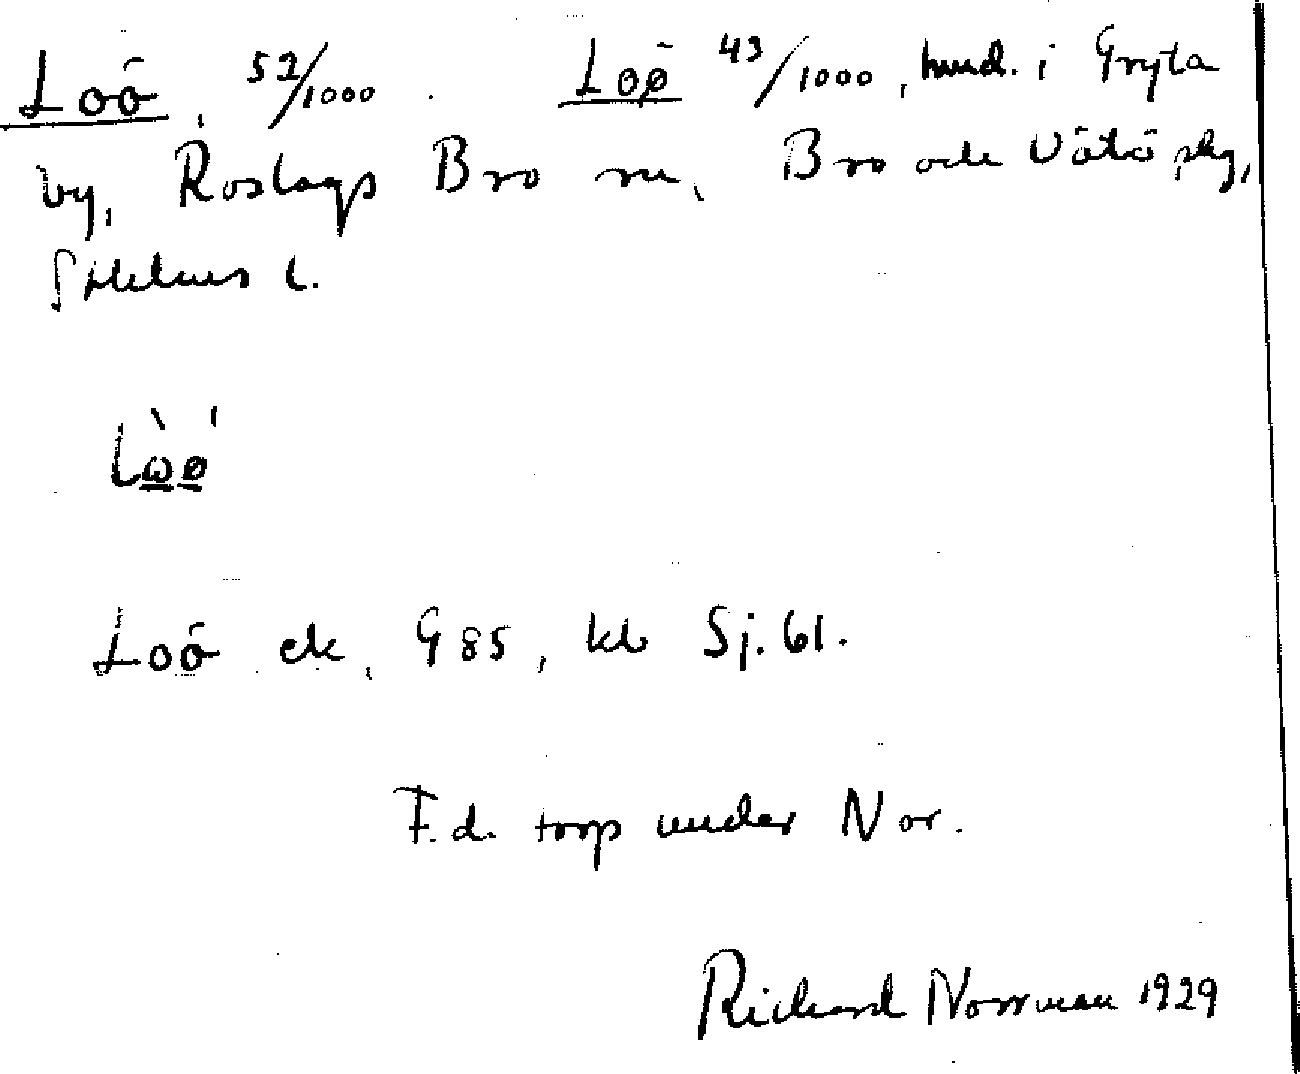 Loö, 52/1000. Loö 43/1000, hmd. i Gryta
by, Roslags Bro sn, Bro och Vätö skg,
Sthlms l.
Lòǿ
Loö ek, G 85, kb Sj. 61.
F.d. torp under Nor.
Richard Norrman 1929